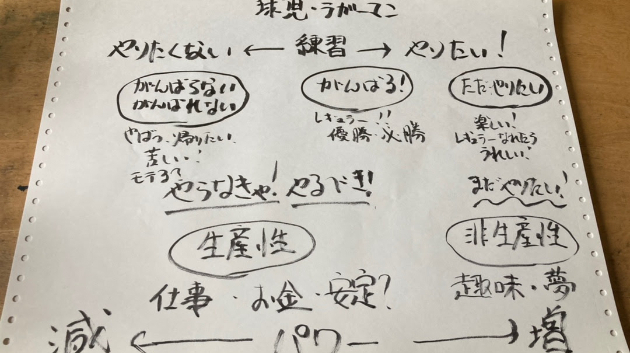 球児・ラガーマン
やりたくない ← 練習 → やりたい!
がんばらない
がんばれない
がんばる!
ただやりたい
やばっ、帰りたい
苦しい!
モテる?
レギュラー!!
優勝・必勝
楽しい!
レギュラーなれたら
うれしい!
やらなきゃ! やるべき!
まだやりたい!
生産性
非生産性
仕事・お金・安定?
趣味・夢
減 ← パワー → 増